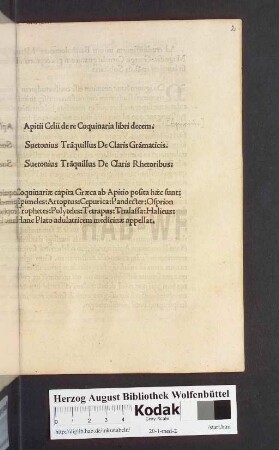 2
Apitii Celii de re Coquinaria libri decem.
Suetonius Trāquillus De Claris Grāmaticis.
Suetonius Trāquillus De Claris Rhetoribus.
Coquinariæ capita Græca ab Apitio posita hæc sunt:
Epimeles: Artoptus: Cepurica: Pandecter: Osprion
Trophetes: Polyteles: Tetrapus: Thalassa: Halieus:
Hanc Plato adulatricem medicinæ appellat.
Herzog August Bibliothek Wolfenbüttel
Kodak
Gray Scale